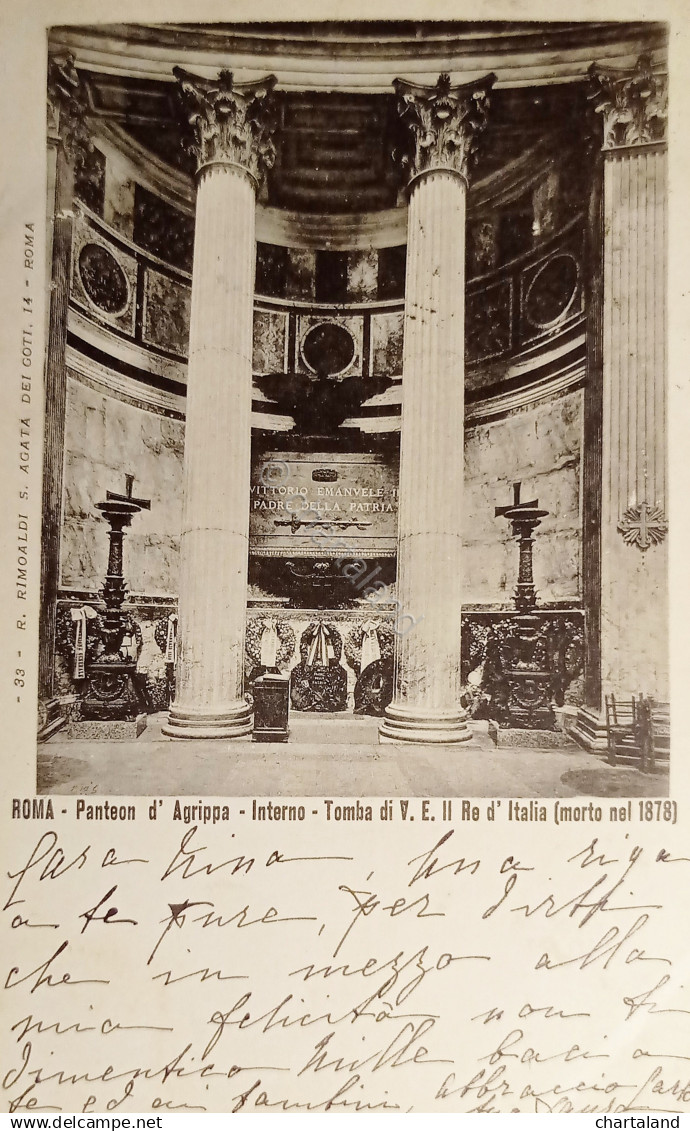 VITTORIO EMANVELE II
PADRE DELLA PATRIA
- 33 - R. RIMOALDI S. AGATA DEI GOTI, 14 - ROMA
ROMA - Panteon d' Agrippa - Interno - Tomba di V. E. II Re d' Italia (morto nel 1878)
Cara Nina, Una riga
a te pure, per dirti
che in mezzo alla
mia felicità non ti
dimentico Mille baci a
te ed ai bambini, abbraccio
tua
chartaland